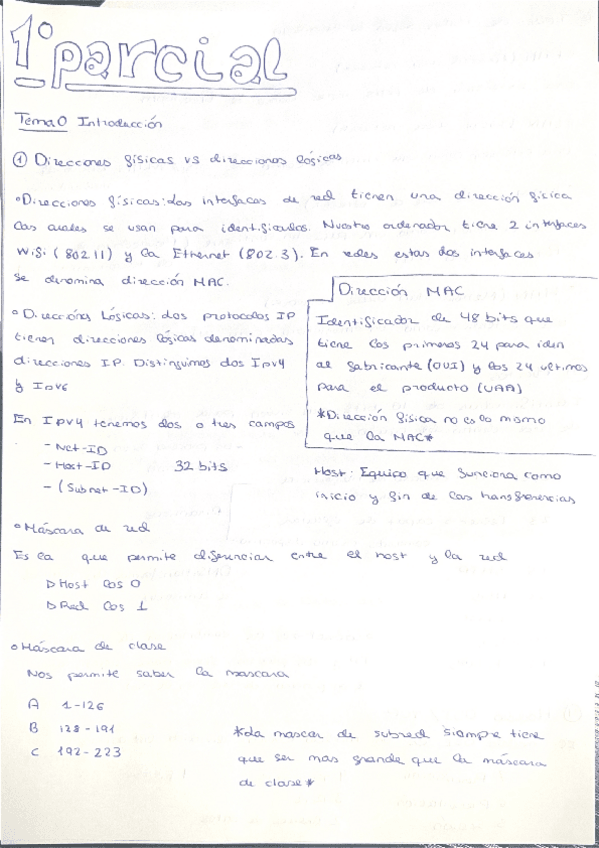 1º parcial
Tema 0 Introducción
① Direcciones físicas vs direcciones lógicas
•Direcciones físicas: las interfaces de red tienen una dirección física
las cuales se usan para identificarlos. Nuestro ordenador tiene 2 interfaces
Wifi (802.11) y la Ethernet (802.3). En redes estas dos interfaces
se denomina dirección MAC.
Dirección MAC
Identificador de 48 bits que
tiene los primeros 24 para iden
al fabricante (OUI) y los 24 ultimos
para el producto (UAA)
*Dirección física no es lo mismo
que la MAC*
•Direccións Lógicas: los protocolos IP
tienen direcciones lógicas denominadas
direcciones IP. Distinguimos dos IPv4
y IPv6
En IPv4 tenemos dos o tres campos
- Net-ID
- Host-ID 32 bits
- (Subnet-ID)
Host: Equipo que funciona como
inicio y fin de las transferencias
•Máscara de red
Es la que permite diferenciar entre el host y la red
▷Host los 0
▷Red los 1
•Máscara de clase
Nos permite saber la mascara
A 1-126
B 128-191
C 192-223
*La mascar de subred siempre tiene
que ser mas grande que la máscara
de clase*